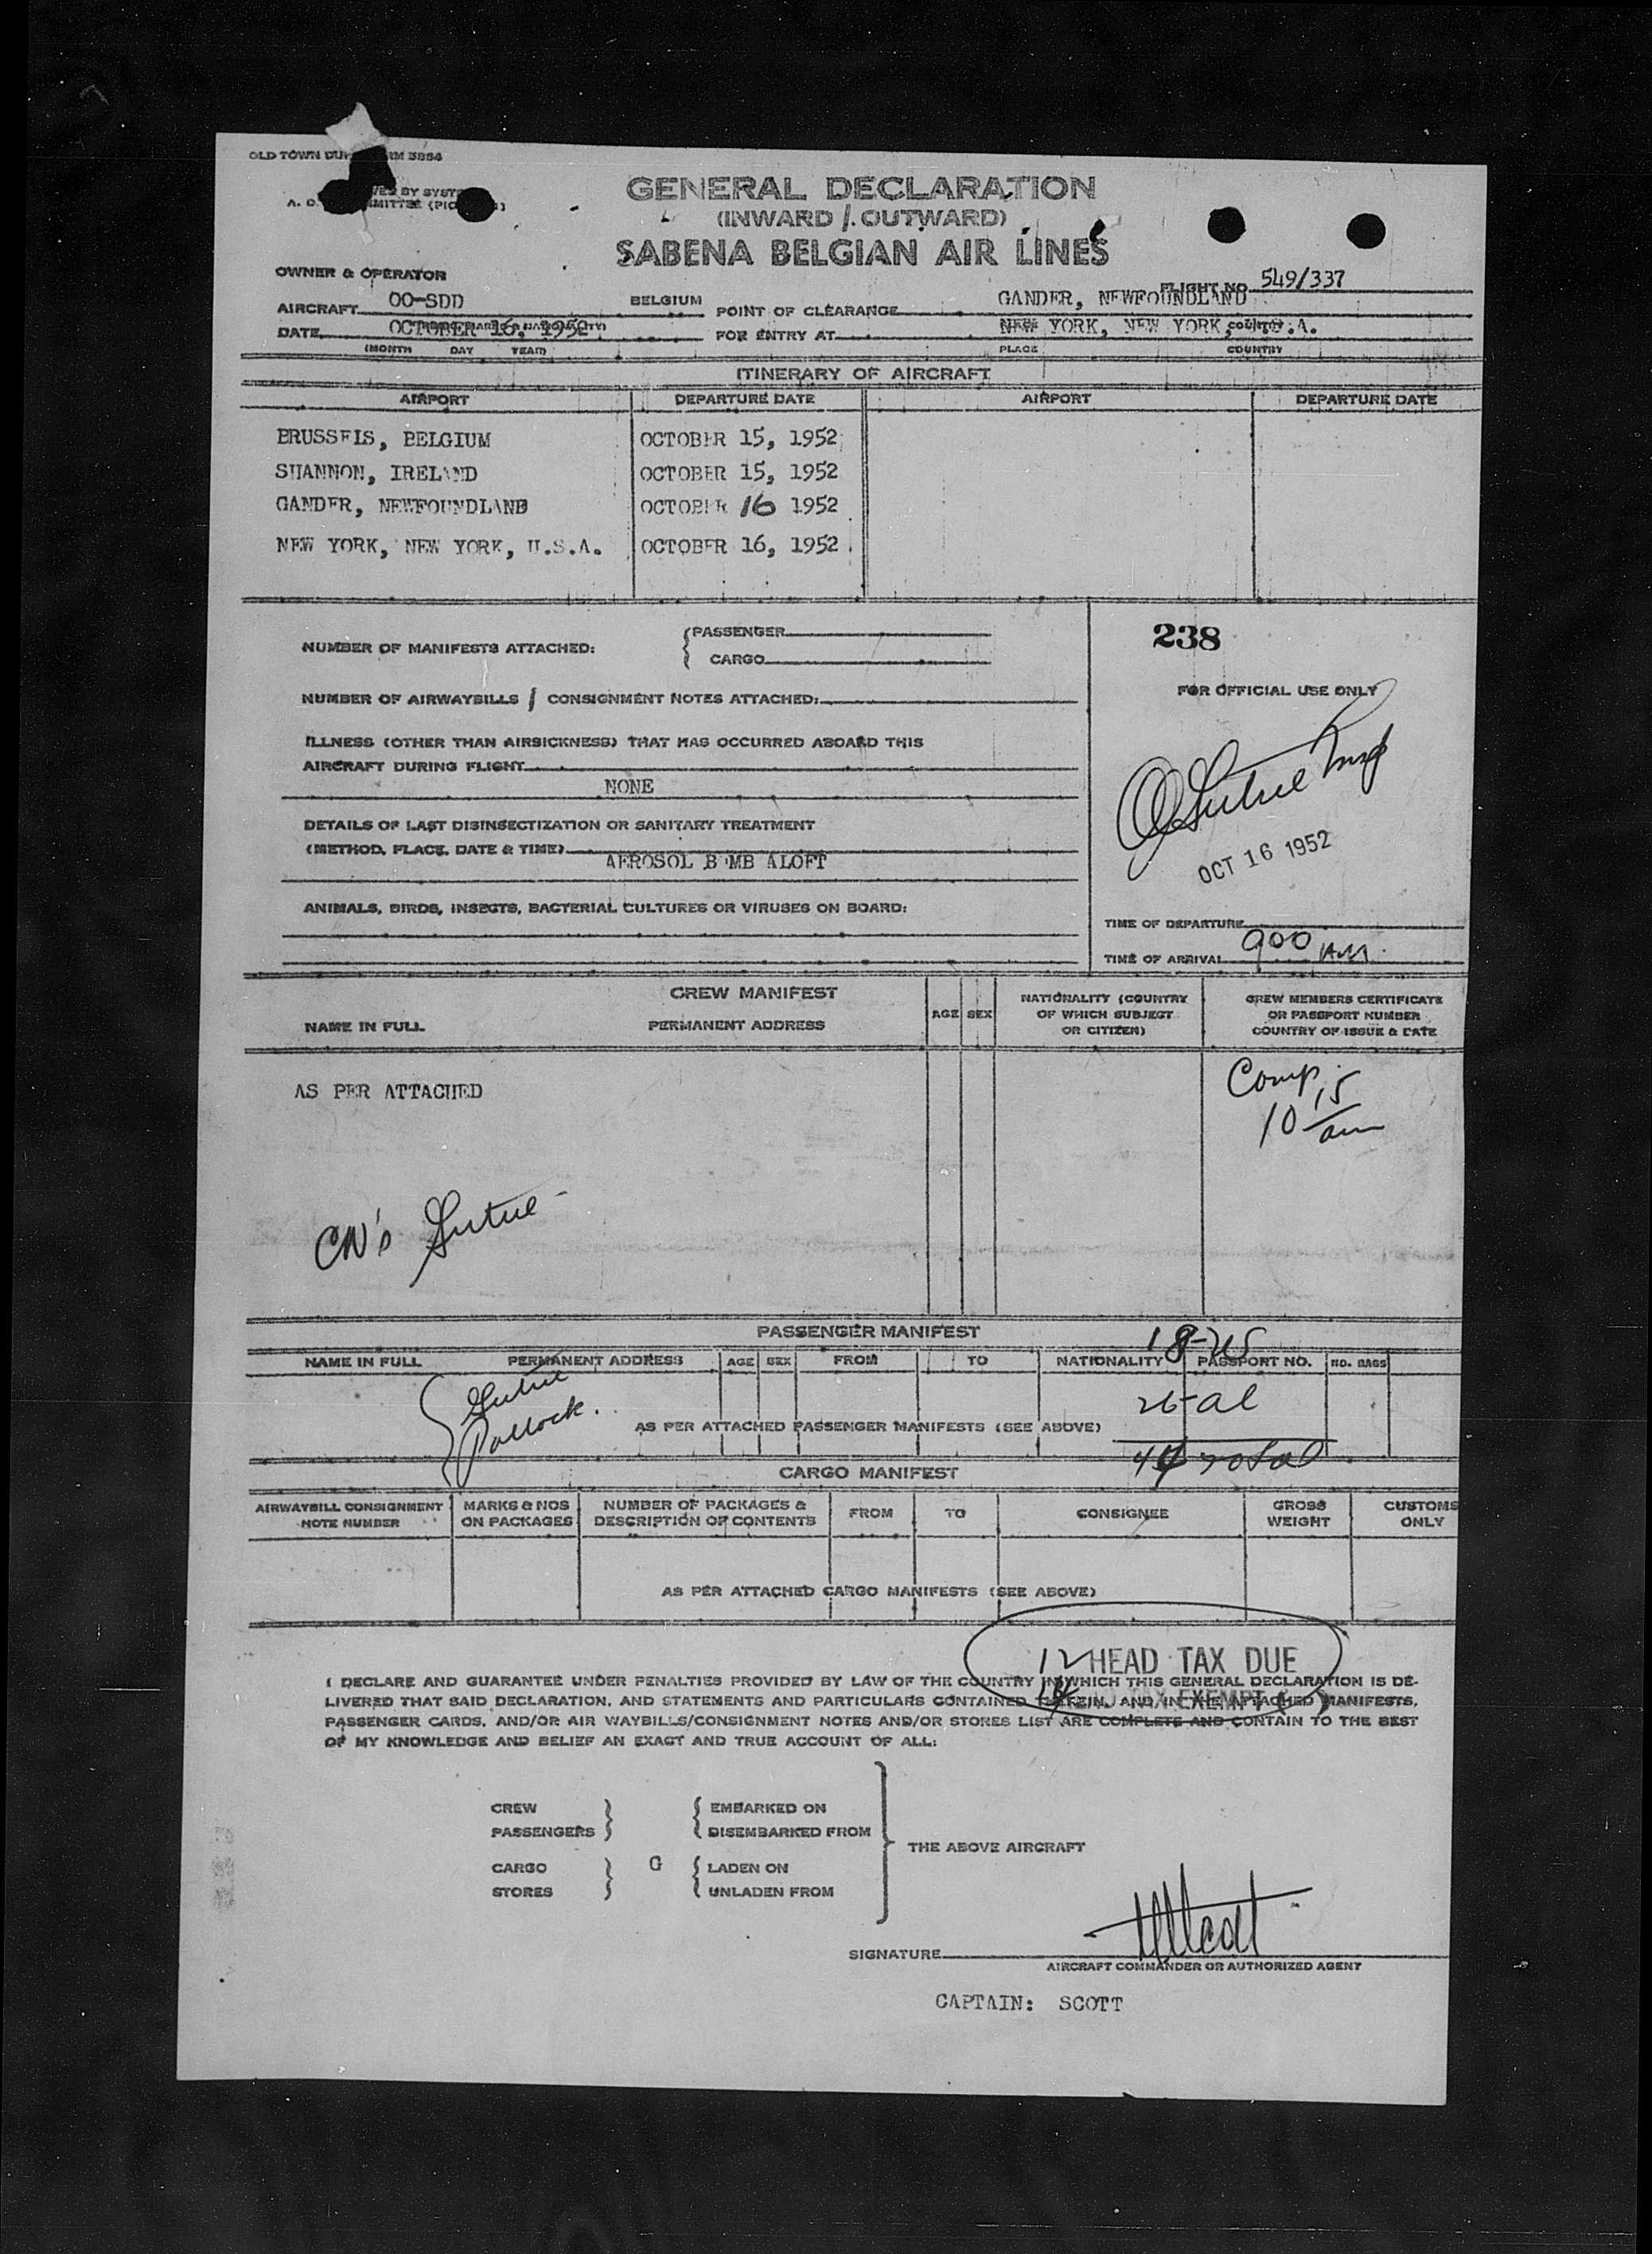 OLD TOWN
GENERAL DECLARATION
(INWARD / OUTWARD)
SABENA BELGIAN AIR LINES
OWNER & OPERATOR
FLIGHT NO. 549/337
AIRCRAFT OO-SDD BELGIUM POINT OF CLEARANCE GANDER, NEWFOUNDLAND
DATE OCTOBER 16, 1952 FOR ENTRY AT NEW YORK, NEW YORK, U.S.A.
(MONTH DAY YEAR) PLACE COUNTRY
ITINERARY OF AIRCRAFT
AIRPORT DEPARTURE DATE AIRPORT DEPARTURE DATE
BRUSSELS, BELGIUM OCTOBER 15, 1952
SHANNON, IRELAND OCTOBER 15, 1952
GANDER, NEWFOUNDLAND OCTOBER 16 1952
NEW YORK, NEW YORK, U.S.A. OCTOBER 16, 1952
NUMBER OF MANIFESTS ATTACHED: PASSENGER
CARGO
NUMBER OF AIRWAYBILLS / CONSIGNMENT NOTES ATTACHED:
ILLNESS (OTHER THAN AIRSICKNESS) THAT HAS OCCURRED ABOARD THIS
AIRCRAFT DURING FLIGHT
NONE
DETAILS OF LAST DISINSECTIZATION OR SANITARY TREATMENT
(METHOD, PLACE, DATE & TIME)
AEROSOL BOMB ALOFT
ANIMALS, BIRDS, INSECTS, BACTERIAL CULTURES OR VIRUSES ON BOARD:
238
FOR OFFICIAL USE ONLY
OCT 16 1952
TIME OF DEPARTURE
TIME OF ARRIVAL 900 AM
CREW MANIFEST
NAME IN FULL PERMANENT ADDRESS AGE SEX NATIONALITY (COUNTRY OF WHICH SUBJECT OR CITIZEN) CREW MEMBERS CERTIFICATE OR PASSPORT NUMBER COUNTRY OF ISSUE & DATE
AS PER ATTACHED
Comp.
10 15 am
CN's
PASSENGER MANIFEST
18-US
NAME IN FULL PERMANENT ADDRESS AGE SEX FROM TO NATIONALITY PASSPORT NO. NO. BAGS
Pollock.
26-al
AS PER ATTACHED PASSENGER MANIFESTS (SEE ABOVE)
44 Total
CARGO MANIFEST
AIRWAYBILL CONSIGNMENT NOTE NUMBER MARKS & NOS ON PACKAGES NUMBER OF PACKAGES & DESCRIPTION OF CONTENTS FROM TO CONSIGNEE GROSS WEIGHT CUSTOMS ONLY
AS PER ATTACHED CARGO MANIFESTS (SEE ABOVE)
12 HEAD TAX DUE
I DECLARE AND GUARANTEE UNDER PENALTIES PROVIDED BY LAW OF THE COUNTRY IN WHICH THIS GENERAL DECLARATION IS DE-
LIVERED THAT SAID DECLARATION, AND STATEMENTS AND PARTICULARS CONTAINED THEREIN, AND IN THE ATTACHED MANIFESTS,
PASSENGER CARDS, AND/OR AIR WAYBILLS/CONSIGNMENT NOTES AND/OR STORES LIST ARE COMPLETE AND CONTAIN TO THE BEST
OF MY KNOWLEDGE AND BELIEF AN EXACT AND TRUE ACCOUNT OF ALL:
CREW EMBARKED ON
PASSENGERS DISEMBARKED FROM
THE ABOVE AIRCRAFT
CARGO G LADEN ON
STORES UNLADEN FROM
SIGNATURE
AIRCRAFT COMMANDER OR AUTHORIZED AGENT
CAPTAIN: SCOTT